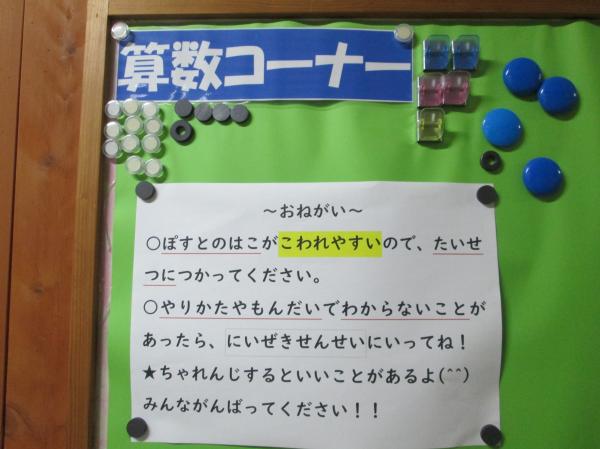 算数コーナー
～おねがい～
○ぽすとのはこがこわれやすいので、たいせ
つにつかってください。
○やりかたやもんだいでわからないことが
あったら、にいぜきせんせいにいってね！
★ちゃれんじするといいことがあるよ(^^)
みんながんばってください！！